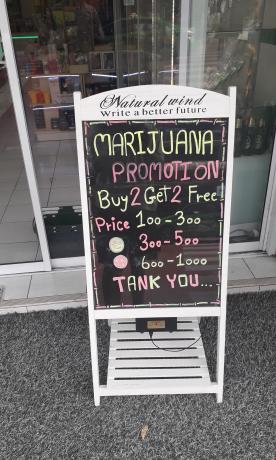 Natural wind
Write a better future
MARIJUANA
PROMOTION
Buy 2 Get 2 Free
Price 100-300
300-500
600-1000
THANK YOU...